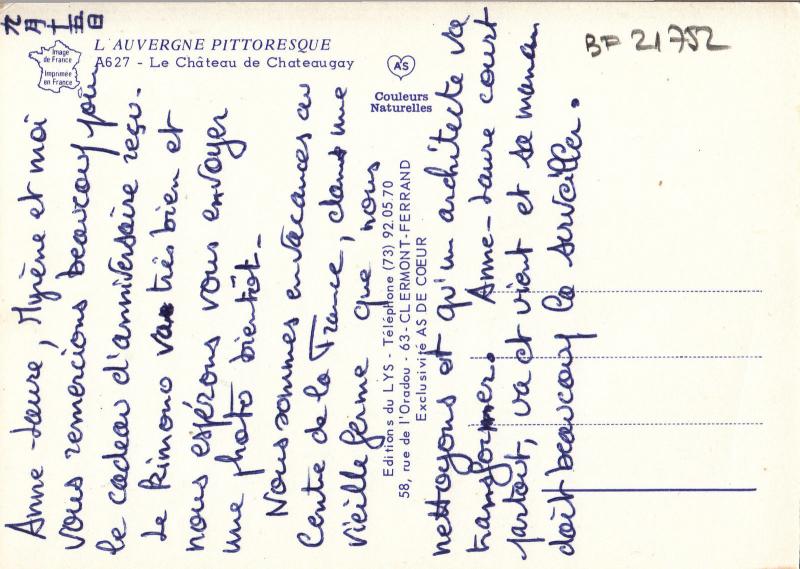 九月十五日
Image
de France
Imprimée
en France
L'AUVERGNE PITTORESQUE
A627 - Le Château de Chateaugay
AS
Couleurs
Naturelles
BF 21752
Anne-Laure, Myrène et moi
vous remercions beaucoup pour
le cadeau d'anniversaire reçu.
Le kimono va très bien et
nous espérons vous envoyer
une photo bientôt.
Nous sommes en vacances au
Centre de la France, dans une
vieille ferme que nous
nettoyons et qu'un architecte va
transformer. Anne-Laure court
partout, va et vient et sa maman
doit beaucoup la surveiller.
Editions du LYS - Téléphone (73) 92.05.70
58, rue de l'Oradou - 63-CLERMONT-FERRAND
Exclusivité AS DE COEUR